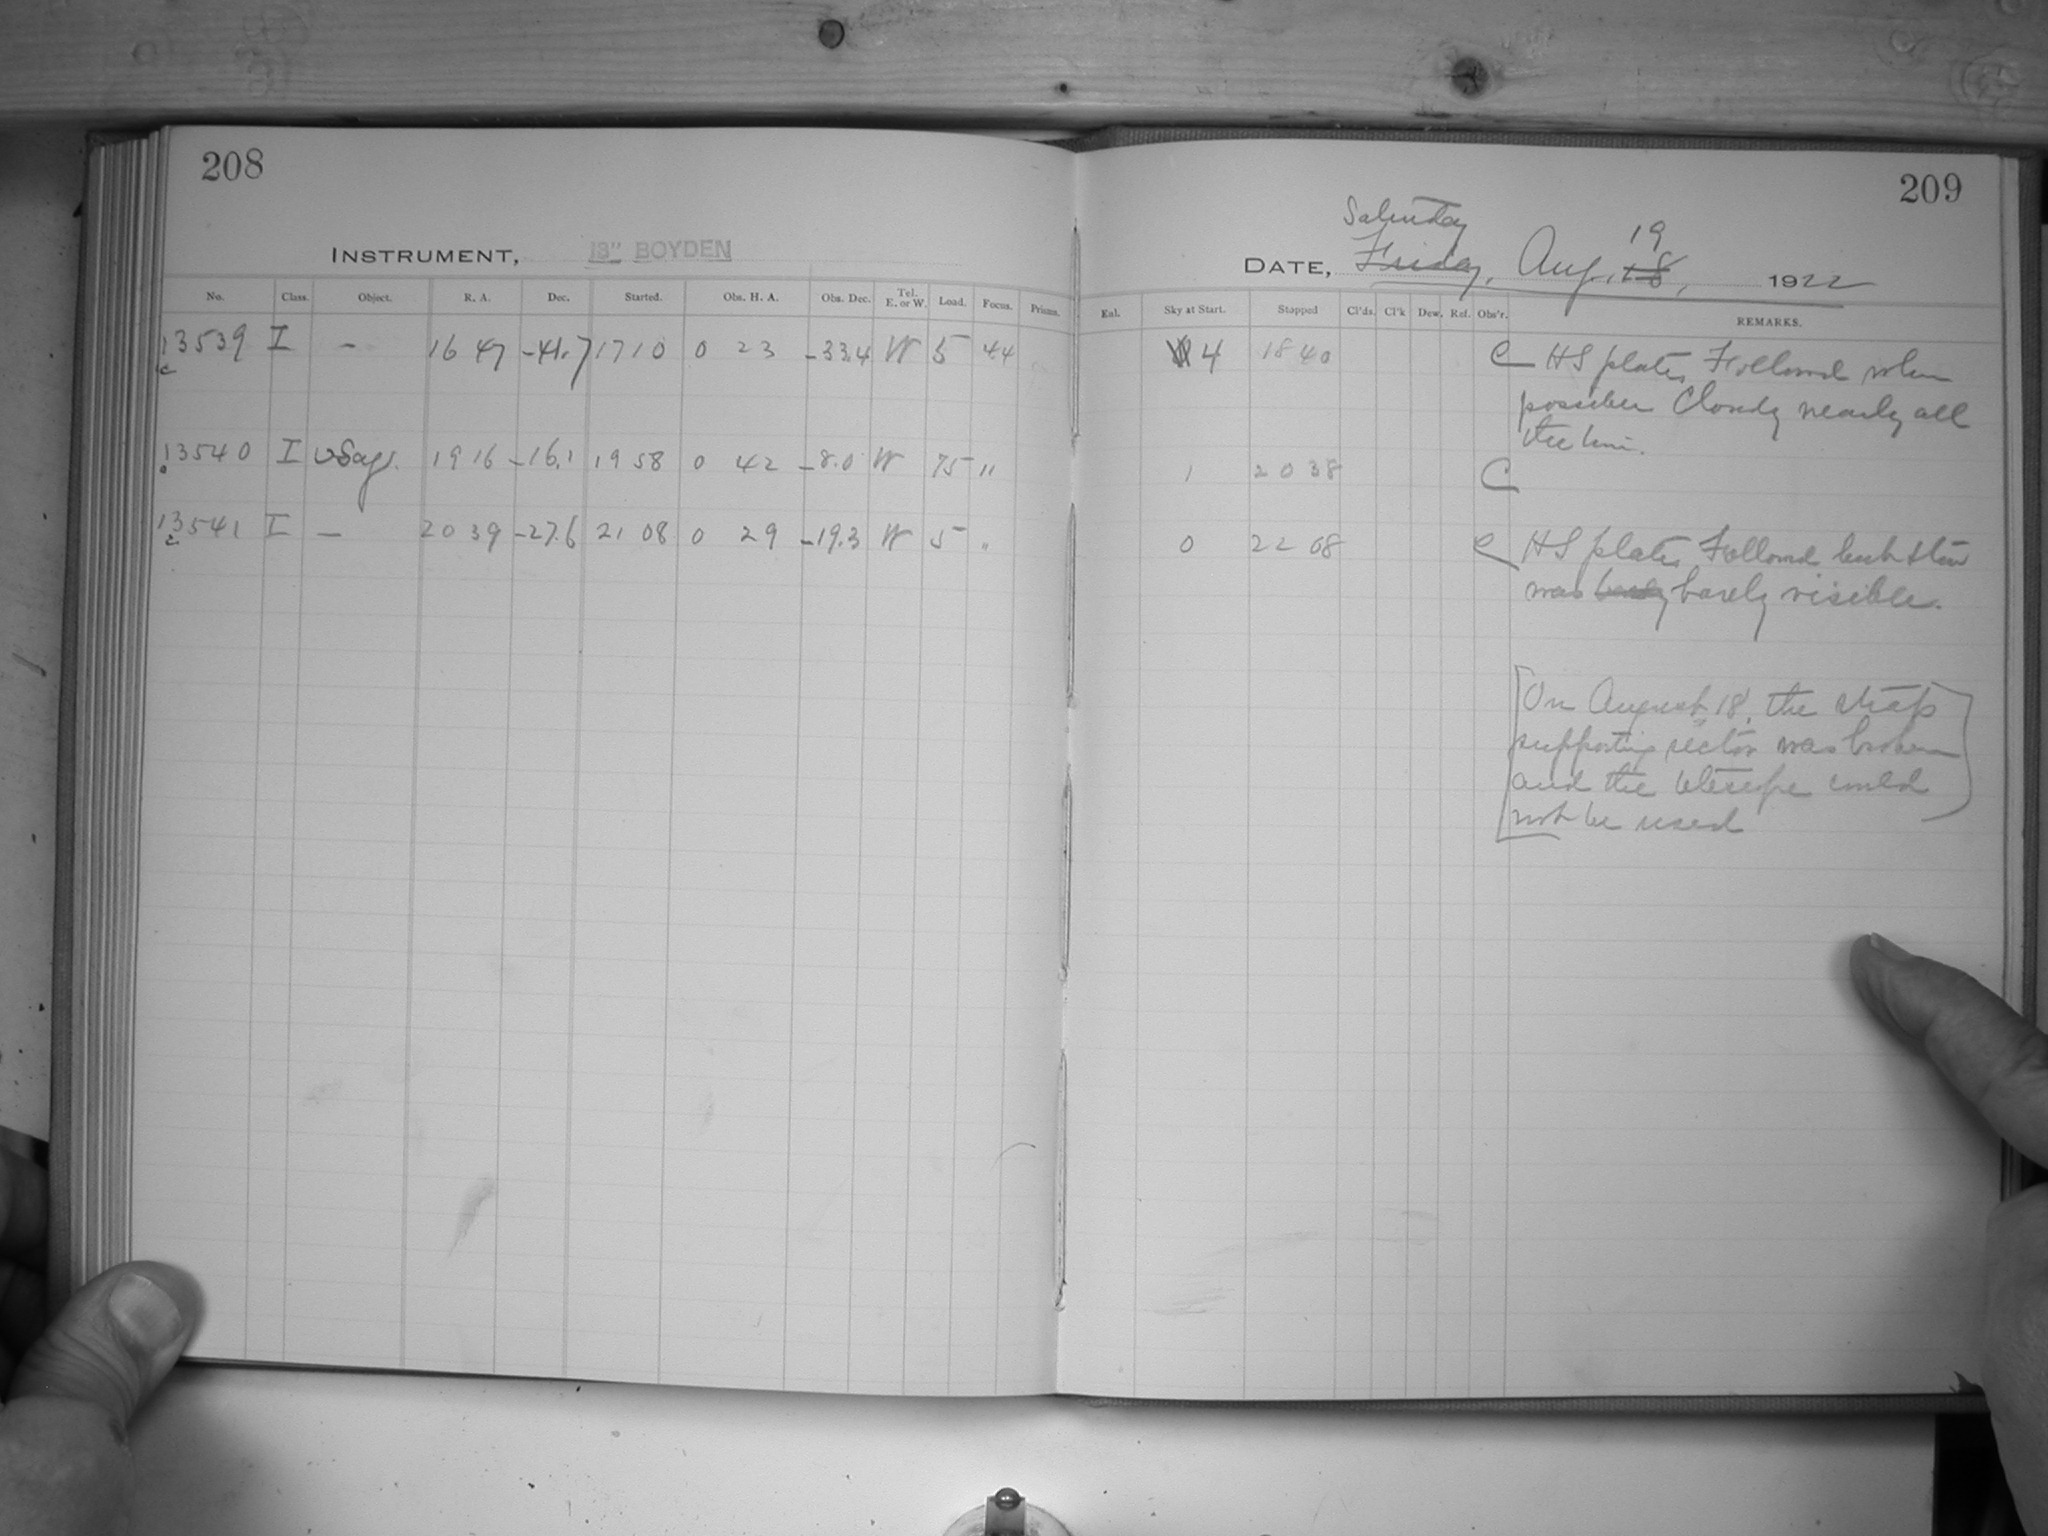 208
INSTRUMENT, 13" BOYDEN
No. Class. Object. R. A. Dec. Started. Obs. H. A. Obs. Dec. Tel. E. or W. Load. Focus. Prisms.
13539 I – 16 47 -41.7 17 10 0 23 -33.4 W 5 44
c
13540 I υ Sagr. 19 16 -16.1 19 58 0 42 -8.0 W 75 "
13541 I – 20 39 -27.6 21 08 0 29 -19.3 W 5 "
c
209
Saturday 19
DATE, Friday, Aug. 18, 1922
Exl. Sky at Start. Stopped Cl'ds. Cl'k Dew. Ref. Obs'r. REMARKS.
4 18 40 C HS plates Followed when
possible Cloudy nearly all
the time.
1 20 38 C
0 22 08 C HS plates Followed but star
was barely visible.
[On August 18, the strap
supporting sector was broken
and the telescope could
not be used]